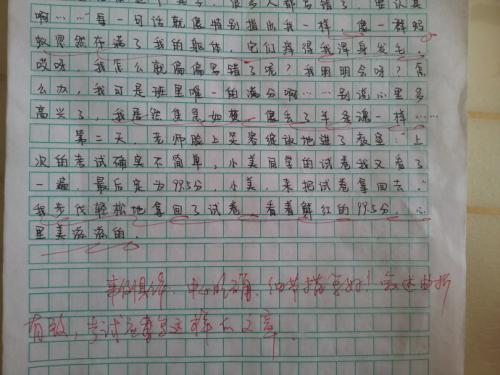 多人都写错了，要认真
啊……"每一句话就像特别指出我一样，像一群蚂
蚁黑然存满了我的躯体，它们弄得我浑身发毛。
哎呀，我怎么就偏偏写错了呢？我明明会呀！怎
么办，我可是班里唯一的满分啊……别说心里多
高兴了，我居然焦急如焚，像丢了羊
第二天，老师脸上笑容绽放地进了教室："上
次的考试确实不简单，小美同学的试卷我又看了
一遍，最后定为99.5分，小美，来把试卷拿回去。"
我步伐轻松地拿回了试卷，看着鲜红的99.5分，心
里美滋滋的。
事例具体，中心明确，细节描写好！叙述曲折
有致，考试就要写这样的文章。